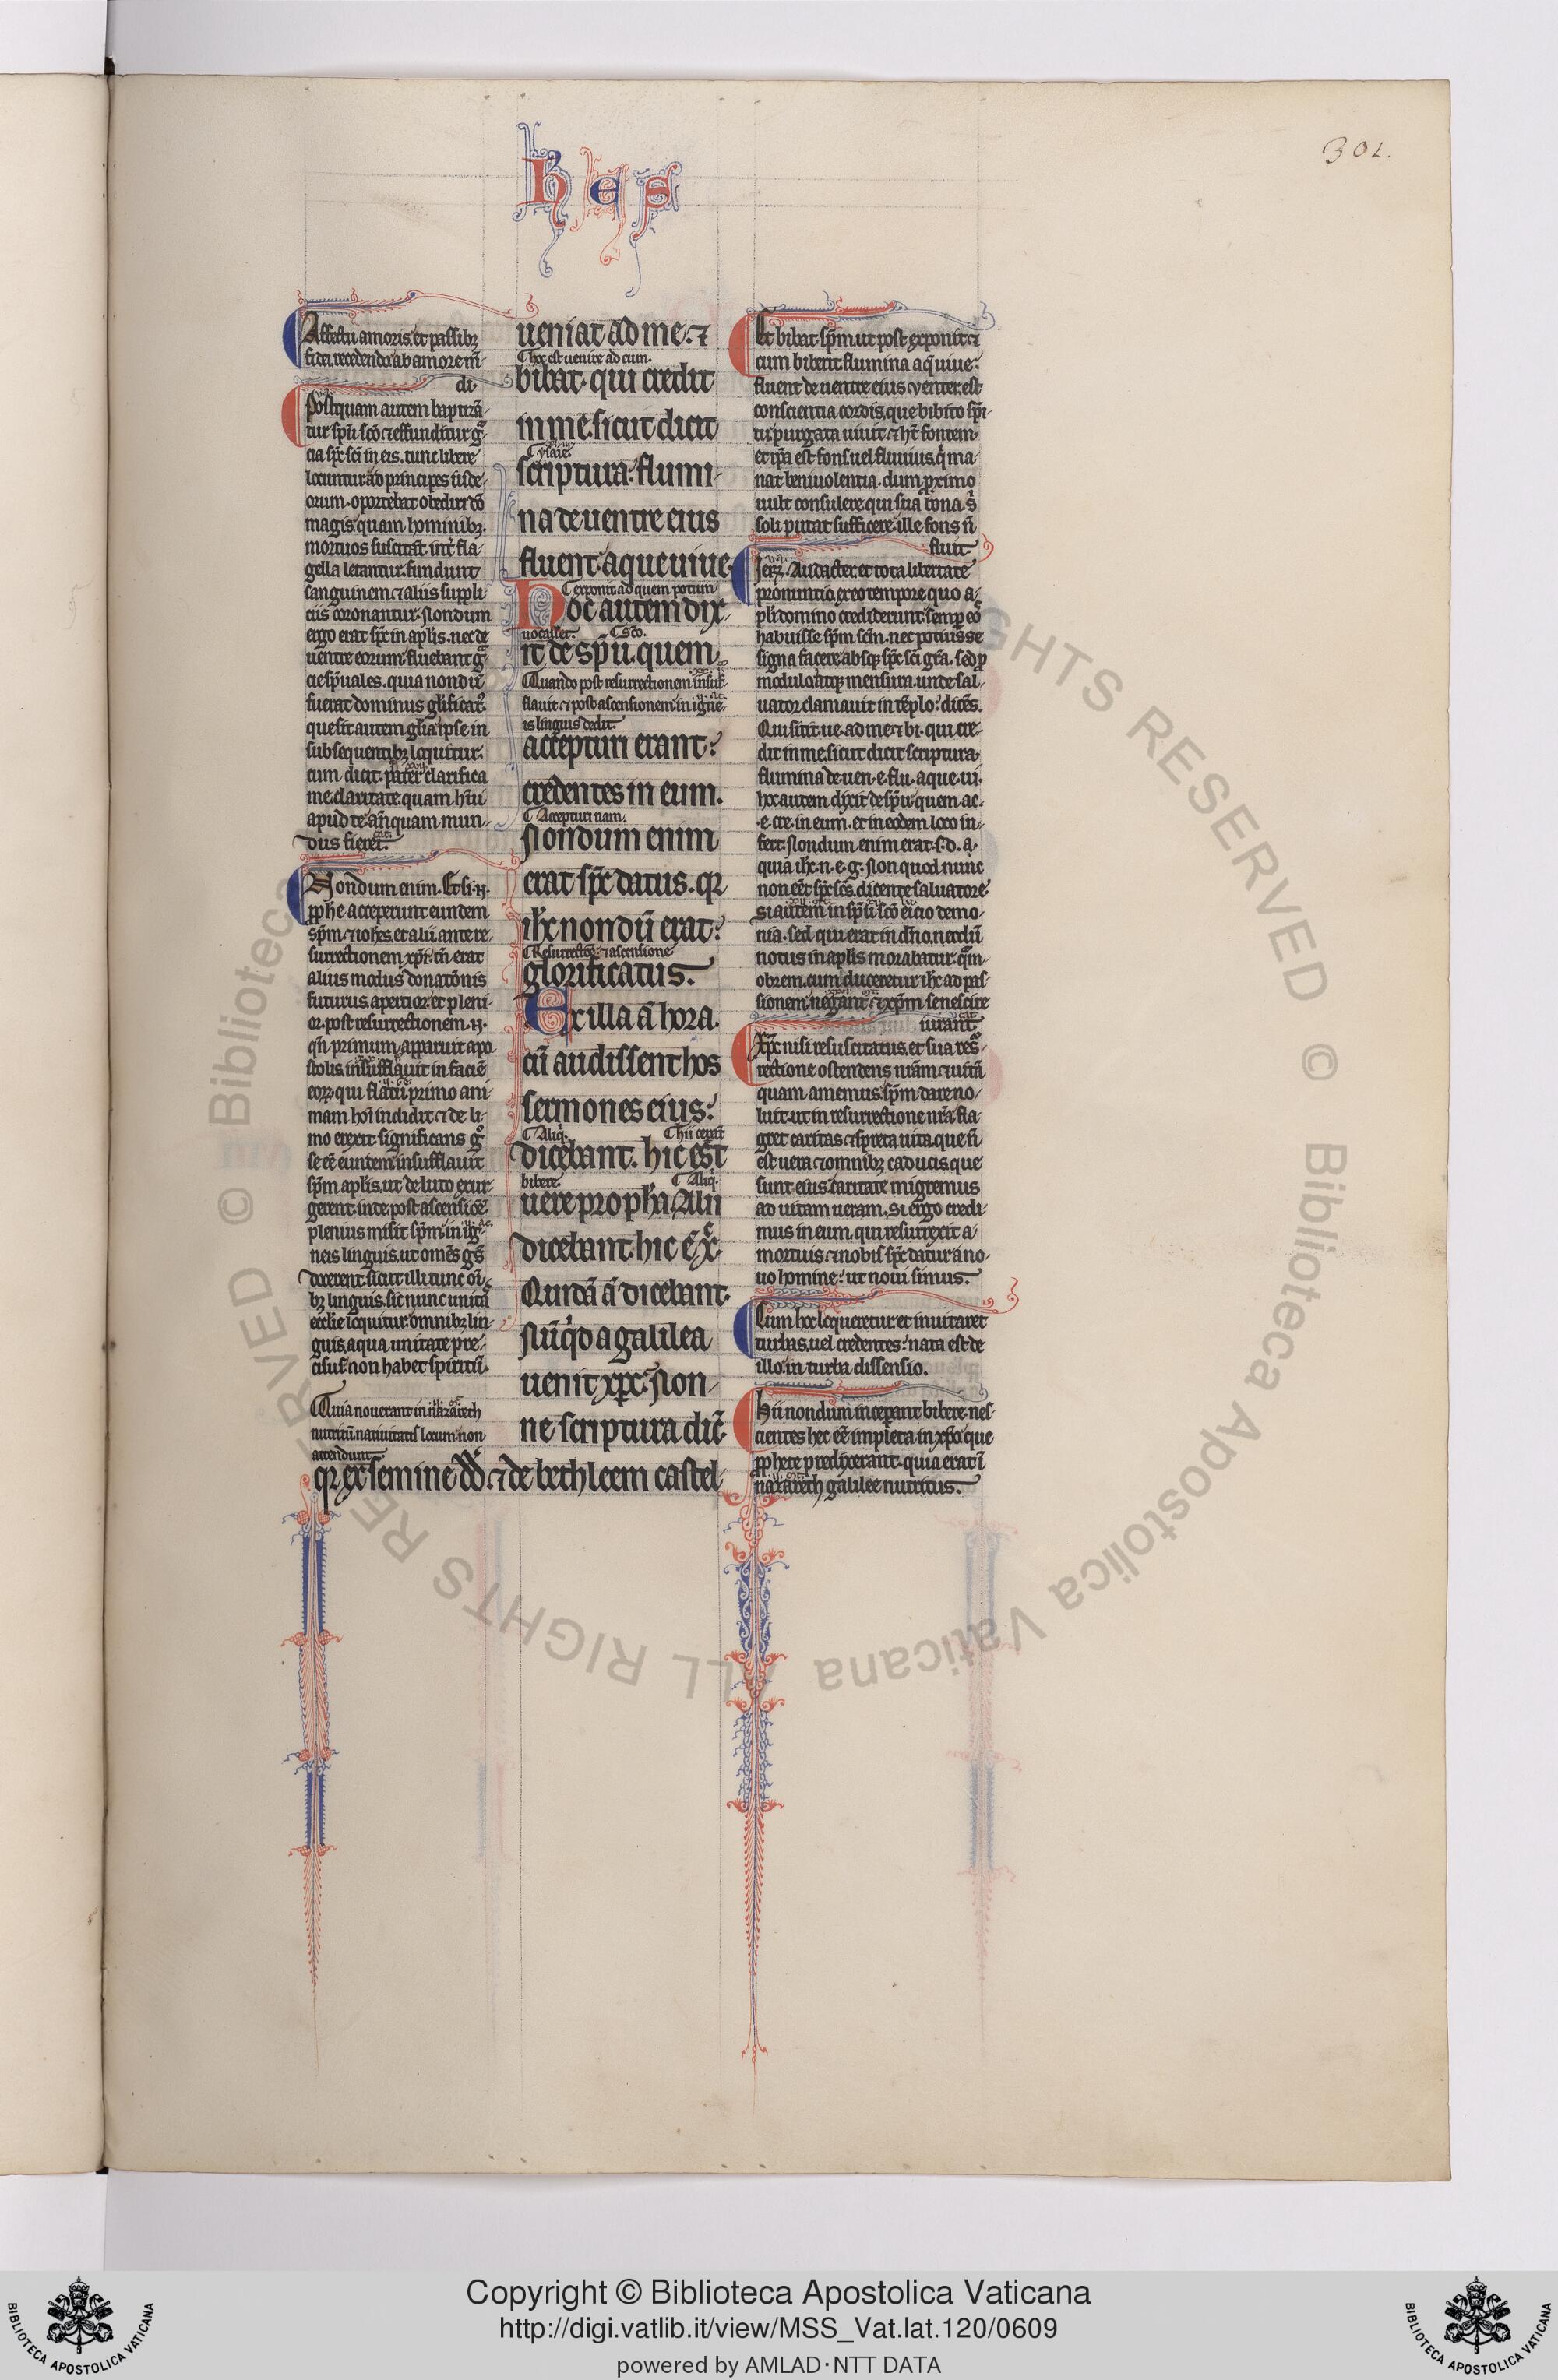 hes
302.
Affectu amoris. et passibꝫ
fidei. recedendo ab amore mū
di.
Postquam autem baptizā
tur spū scō ⁊ effunditur gͣ
cia spc̄ sci in eis. tunc libere
locuntur ad principes iude
orum. oportebat obediri dō
magis quam hominibꝫ.
mortuos suscitāt. int̄ fla
gella letantur. fundunt
sanguinem. ⁊ aliis suppli
ciis coronantur. Nondum
ergo erat spc̄ in aplis. nec de
uentre eorum fluebant gͣ
cie spūales. quia nondū
fuerat dominus glificat᷒.
que sit autem glia ipse in
subsequentibꝫ loquitur.
cum dicit. pater clarifica
me. claritate quam hūi
apud te. anquam mun
dus fieret.
Nondum enim. Et si .n.
ꝓphe acceperunt eundem
spm̄. ⁊ iohes. et alii ante re
surrectionem xp̄i. tn̄ erat
alius modus donatōnis
futurus. apertior. et pleni
or. post resurrectionem .n.
qn̄ primum apparuit apo
stolis. insufflauit in faciē
eoꝝ. qui flatu primo ani
mam hoī indidit. ⁊ de li
mo erexit. significans gͦ
se eē eundem. insufflauit
spm̄ aplis. ut de luto exur
gerent. inde post ascensiōē
plenius misit spm̄. in ig
neis linguis. ut omēs gēs
docerent. sicut illi tunc oī
bꝫ linguis. sic nunc unitͣ
ecclie loquitur omnibꝫ lin
guis. a qua unitate pre
cisus. non habet spiritū.
Quia nouerant in nazareth
nutritū. natiuitatis locum. non
attendunt.
ueniat ad me. ⁊
Hoc est uenire ad eum.
bibat. qui credit
in me. sicut dicit
ysaie.
scriptura. flumi
na de uentre eius
fluent aque uiue.
exponit ad quem potum
Hoc autem dix
uocasset. scō.
it de spū. quem
Quando post resurrectionem insuf
flauit. ⁊ post ascensionem. in igne
is linguis dedit.
accepturi erant
credentes in eum.
Accepturi nam.
Nondum enim
erat spc̄ datus. qꝛ
ihc̄ nondū erat
Resurrectōe. ⁊ ascensione
glorificatus.
Ex illa ā hora.
cū audissent hos
sermones eius.
Aliq̄. Hii cepāt
dicebant. hic est
bibere. Aliq̄.
uere propha. Alii
dicebant. hic ē xc̄.
Quidā ā dicebant.
Nūqͥd a galilea
uenit xpc̄. Non
ne scriptura dic̄.
qꝛ ex semine dd̄. ⁊ de bethleem castel
Et bibat spm̄. ut post exponit. ⁊
cum biberit flumina aq̄ uiue.
fluent de uentre eius. uenter. est
conscientia cordis. que bibito spi
ritu purgata uiuit. ⁊ hʼt fontem.
et ipā est fons. uel fluuius. qͥ ma
nat beniuolentia. dum ꝓximo
uult consulere. qui sua bona. sͥ
soli putat sufficere. ille fons n̄
fluit.
Ieꝝ. Audacter. et tota libertate
pronuntio. ex eo tempore quo a
pli domino crediderunt. semꝑ eos
habuisse spm̄ scm̄. nec potuisse
signa facere absqꝫ spc̄ sci grā. sed ꝓ
modulo. atqꝫ mensura. unde sal
uator clamauit in tēplo. dicēs.
Qui sitit. ue. ad me. ⁊ bi. qui cre
dit in me. sicut dicit scriptura.
flumina de uen. e. flu. aque. ui.
hoc autem dixit de spū. quem ac.
e. cre. in eum. et in eodem loco in
fert. Nondum enim erat. s. d. a.
quia ihc̄. n. e. g. Non quod nunc
non eēt spc̄ scs̄. dicente saluatore
Si autem in spū scō eicio demo
nia. sed qui erat in dn̄o. necdū
notus in aplis morabatur. qͣm
obrem. cum duceretur ihc̄ ad pas
sionem. negant. ⁊ xpm̄ se nescire
iurant.
Xpc̄ nisi resuscitatus. et sua res
rectione ostendens uiam. ⁊ uitā
quam amemus. spm̄ dare no
luit. ut in resurrectione nr̄a. fla
gret caritas. ⁊ spreta uita. que n̄
est uera. ⁊ omnibꝫ caducis. que
sunt eius. caritate migremus
ad uitam ueram. Si ergo credi
mus in eum. qui resurrexit a
mortuis. ⁊ nobis spc̄ datur. a no
uo homine. ut noui simus.
Cum hoc loqueretur. et inuitaret
turbas. uel credentes. nata est de
illo in turba dissensio.
Hii nondum inceperant bibere. nes
cientes hec eē impleta in xpo. que
ꝓphete predixerant. quia erat ī
nazareth galilee nutritus.
© Biblioteca Apostolica Vaticana ALL RIGHTS RESERVED
Copyright © Biblioteca Apostolica Vaticana
http://digi.vatlib.it/view/MSS_Vat.lat.120/0609
powered by AMLAD·NTT DATA
BIBLIOTECA APOSTOLICA VATICANA
BIBLIOTECA APOSTOLICA VATICANA